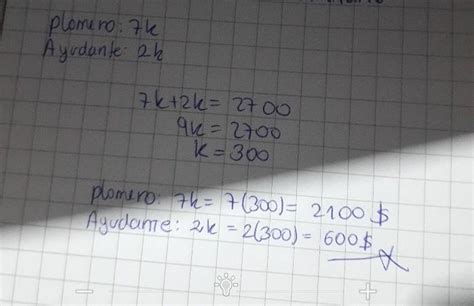 plomero: 7k
Ayudante: 2k
7k+2k = 2700
9k = 2700
k = 300
plomero: 7k = 7(300) = 2100 $
Ayudante: 2k = 2(300) = 600$